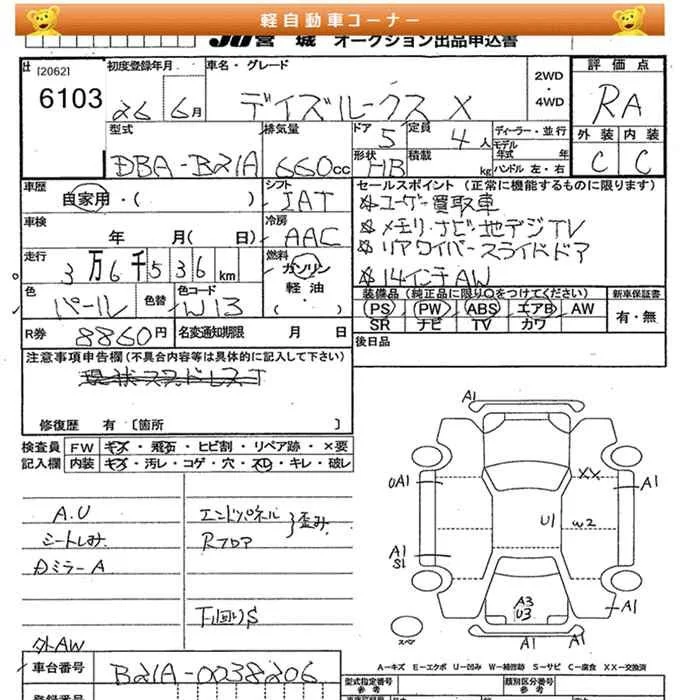 軽自動車コーナー
JU宮城 オークション出品申込書
[2062]
6103
初度登録年月
26 6月
車名・グレード
デイズルークス X
2WD
・
4WD
評価点
RA
外装 内装
C C
型式
DBA-B21A
排気量
660cc
ドア 5
定員 4人
形状 HB
積載 kg
ディーラー・並行
モデル年式 年
ハンドル 左・右
車歴
自家用・( )
シフト
IAT
車検
年 月( 日)
冷房
AAC
走行
3万6千536km
燃料
ガソリン
軽油
・( )
色
パール
色替
色コード
W13
R券 8860円
名変通知期限 月 日
セールスポイント (正常に機能するものに限ります)
☆ユーザー買取車
☆メモリ・ナビ・地デジTV
☆リアワイパー スライドドア
☆14インチAW
装備品(純正品に限り○をつけてください)
PS PW ABS エアB AW
SR ナビ TV カワ
新車保証書
有・無
後日品
注意事項申告欄(不具合内容等は具体的に記入して下さい)
修復歴 有〔箇所 〕
検査員記入欄
FW キズ・飛石・ヒビ割・リペア跡・×要
内装 キズ・汚レ・コゲ・穴・スレ・キレ・破レ
A.U
シートしみ
Dミラー A
外AW
エンドパネル
Rフロア
}歪み
下回りS
A1
UA1
XX
A1
U1
W2
A1
S1
A3
U3
A1
スペア
A1
A1
A-キズ E-エクボ U-凹み W-補修跡 S-サビ C-腐食 XX-交換済
車台番号
B21A-0038206
型式指定番号
参考
類別区分番号
参考
登録番号